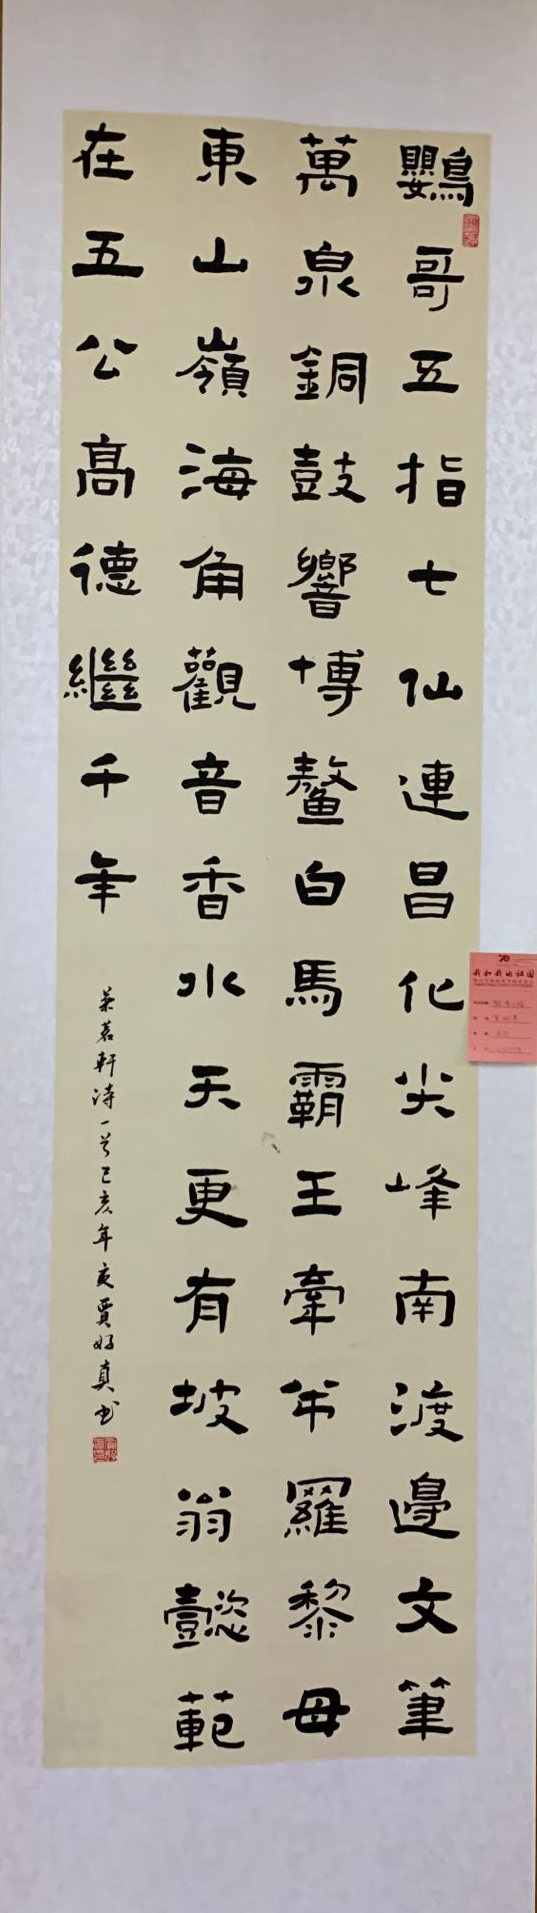 鸚哥五指七仙連昌化尖峰南渡邊文筆
萬泉銅鼓響博鰲白馬霸王牽牛羅黎母
東山嶺海角觀音香水天更有坡翁懿範
在五公高德繼千年
茗軒詩一首己亥年夏賈好真书
我和我的祖国